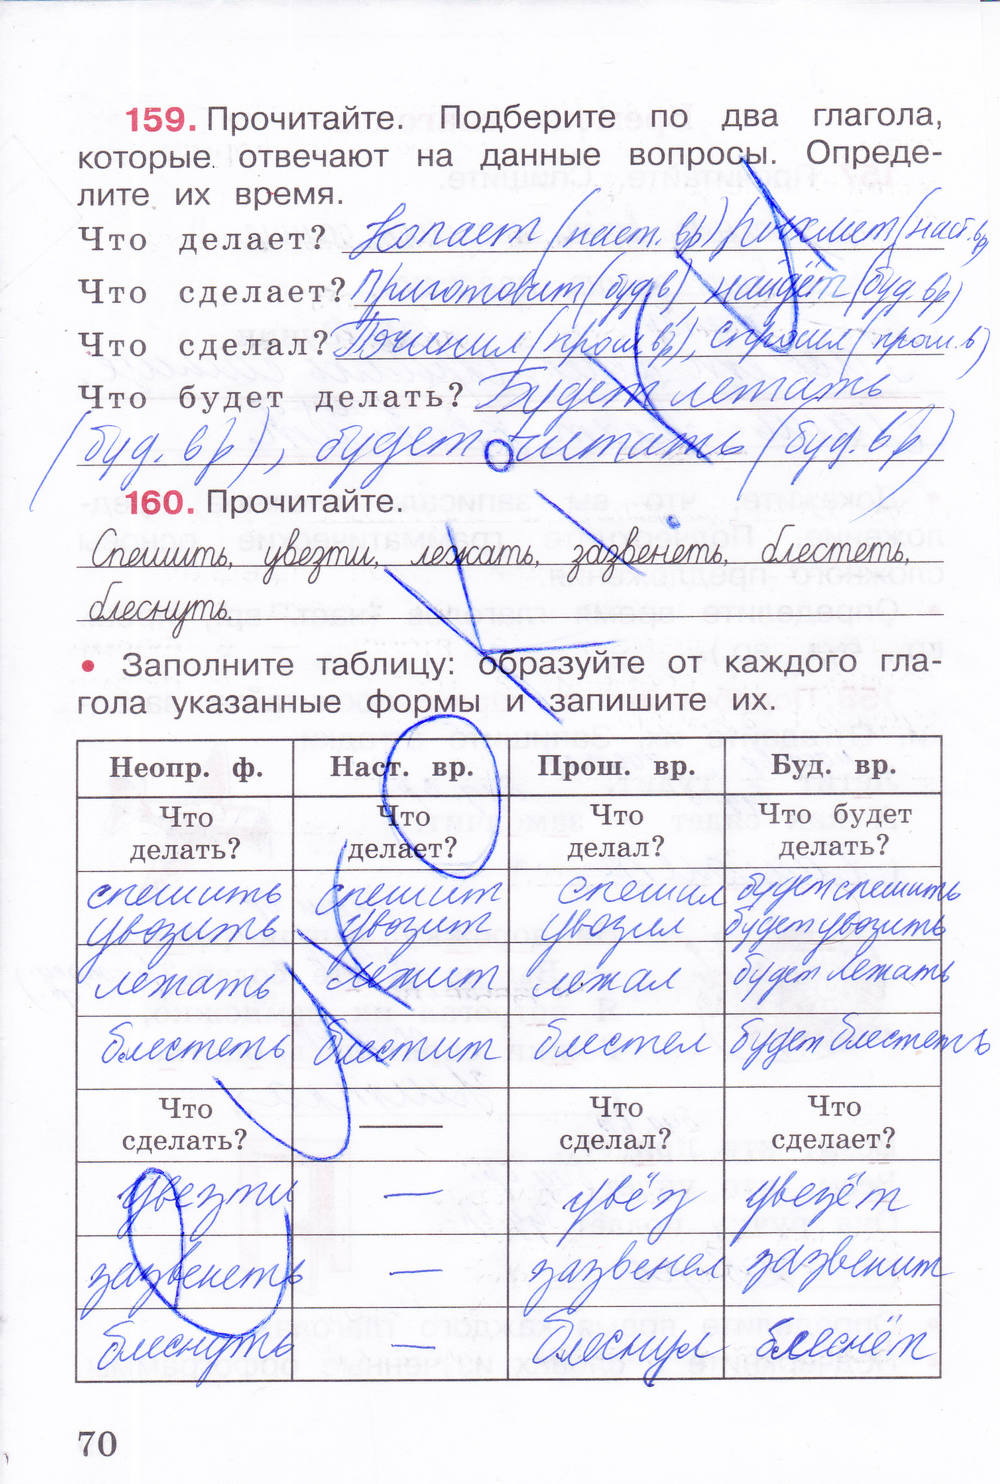 159. Прочитайте. Подберите по два глагола,
которые отвечают на данные вопросы. Опреде-
лите их время.
Что делает? Копает (наст. вр) (наст. вр
Что сделает? Приготовит (буд в) найдёт (буд. вр)
Что сделал? Починил (прош вр), спросил (прош. в)
Что будет делать? Будет летать
(буд. вр), будет читать (буд. вр)
160. Прочитайте.
Спешить, увезти, лежать, зазвенеть, блестеть,
блеснуть.
• Заполните таблицу: образуйте от каждого гла-
гола указанные формы и запишите их.
Неопр. ф. Наст. вр. Прош. вр. Буд. вр.
Что Что Что Что будет
делать? делает? делал? делать?
спешить спешит спешил будет спешить
увозить увозит увозил будет увозить
лежать лежит лежал будет лежать
блестеть блестит блестел будет блестеть
Что Что Что
сделать? —— сделал? сделает?
увезти — увёз увезёт
зазвенеть — зазвенел зазвенит
блеснуть — блеснул блеснёт
70